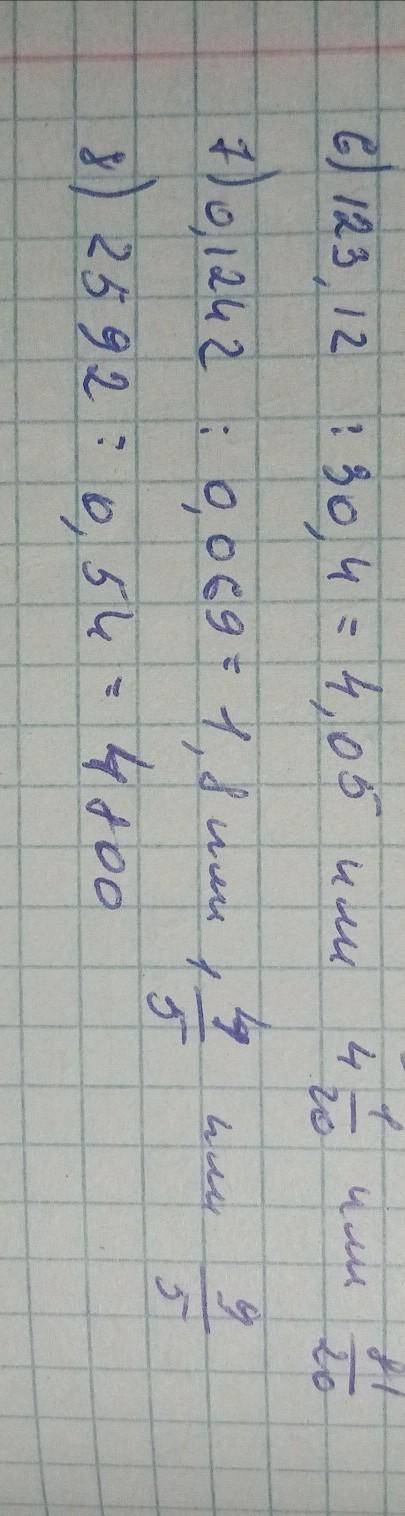 6) 123,12 : 30,4 = 4,05 или 4 1/20 или 81/20
7) 0,1242 : 0,069 = 1,8 или 1 4/5 или 9/5
8) 2592 : 0,54 = 4800